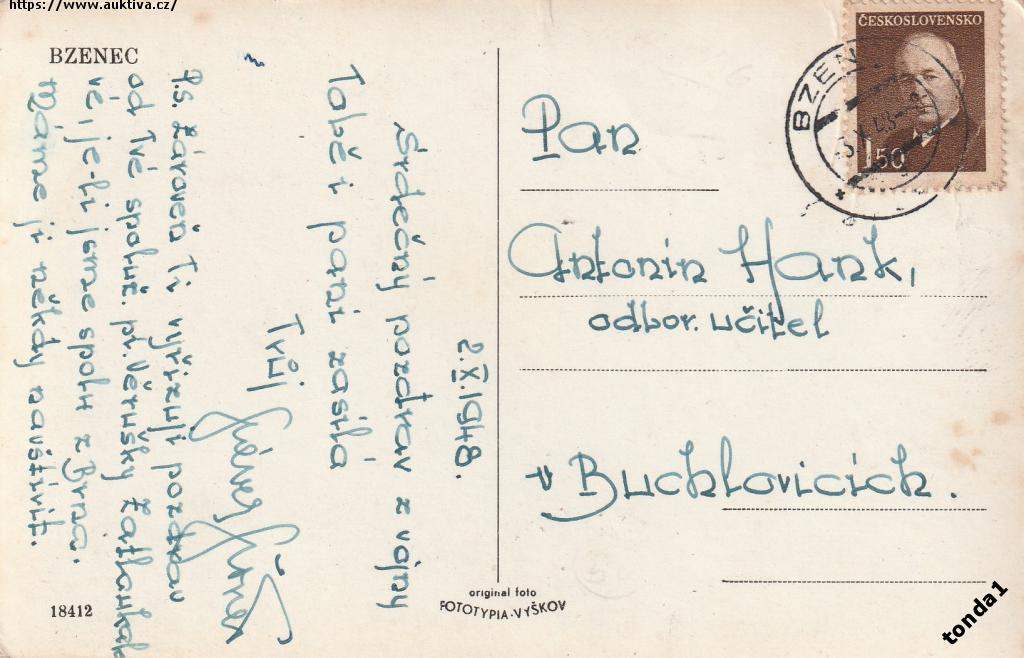 https://www.auktiva.cz/
BZENEC
2.X.1948.
Srdečný pozdrav z vojny
Tobě i paní zasílá
Tvůj
P.S. Zároveň Ti vyřizuji pozdrav
od Tvé spoluž. pí. Věrušky
vé, je-li jsme spolu z Brna.
Máme ji někdy navštívit.
18412
original foto
FOTOTYPIA-VYŠKOV
ČESKOSLOVENSKO
1 50
BZEN
Pan
Antonín Hank,
odbor. učitel
v Buchlovicích.
tonda1